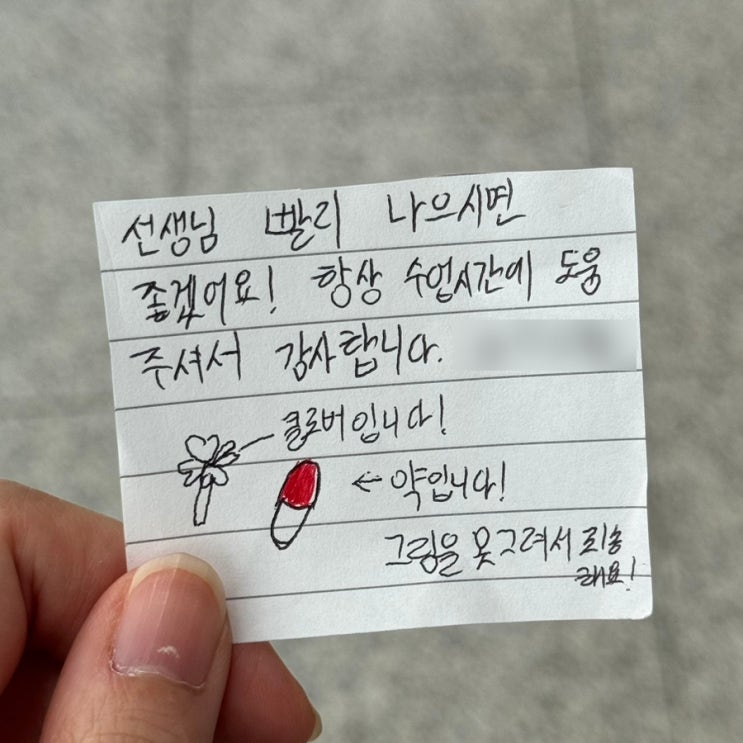 선생님 빨리 나으시면
좋겠어요! 항상 수업시간에 도움
주셔서 감사합니다.
클로버입니다!
← 약입니다!
그림을 못그려서 죄송
해요!